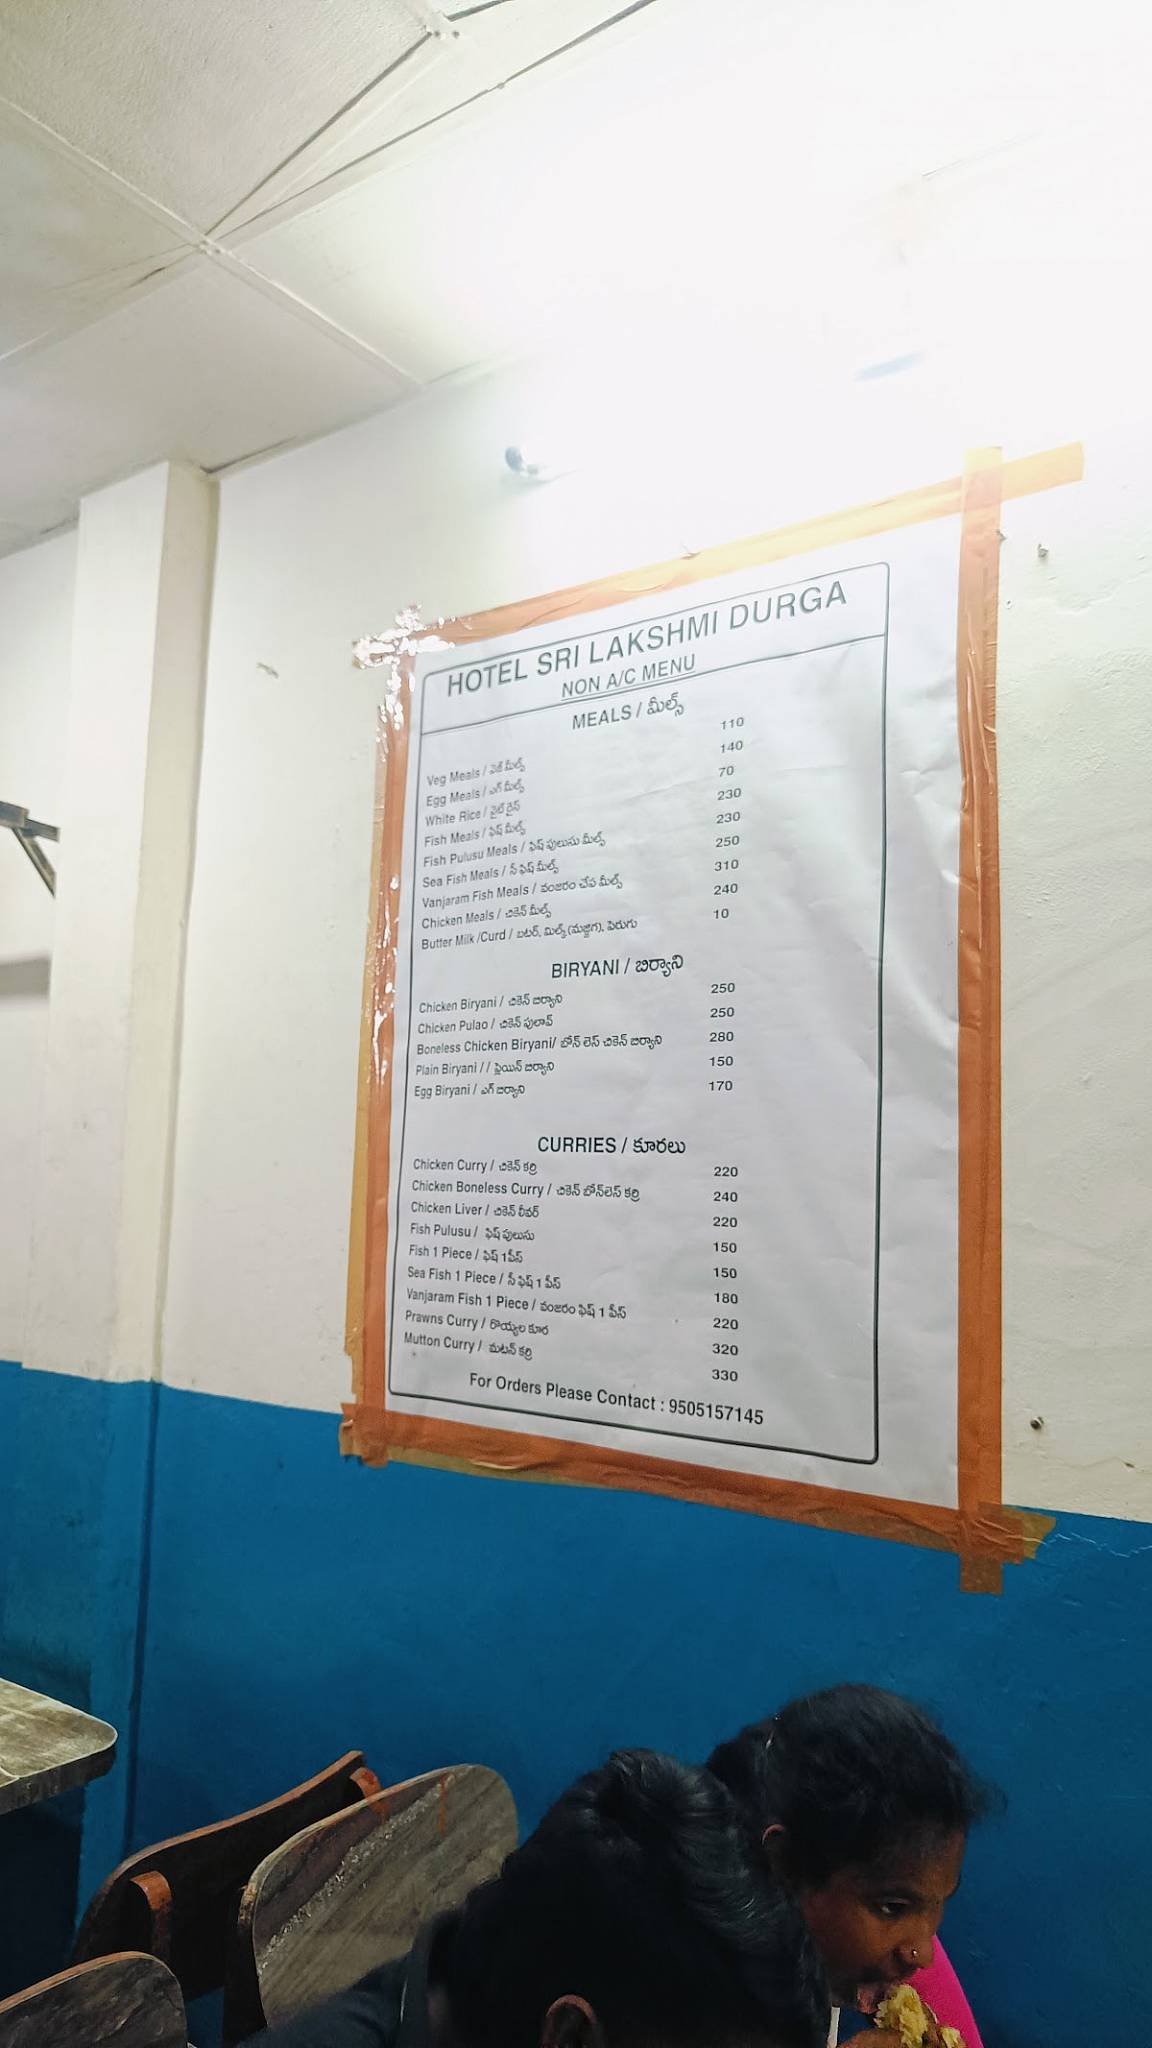 HOTEL SRI LAKSHMI DURGA
NON A/C MENU
MEALS / మీల్స్
Veg Meals / వెజ్ మీల్స్ 110
Egg Meals / ఎగ్ మీల్స్ 140
White Rice / వైట్ రైస్ 70
Fish Meals / ఫిష్ మీల్స్ 230
Fish Pulusu Meals / ఫిష్ పులుసు మీల్స్ 230
Sea Fish Meals / సీ ఫిష్ మీల్స్ 250
Vanjaram Fish Meals / వంజరం చేప మీల్స్ 310
Chicken Meals / చికెన్ మీల్స్ 240
Butter Milk /Curd / బటర్, మిల్క్ (మజ్జిగ), పెరుగు 10
BIRYANI / బిర్యాని
Chicken Biryani / చికెన్ బిర్యాని 250
Chicken Pulao / చికెన్ పులావ్ 250
Boneless Chicken Biryani/ బోన్ లెస్ చికెన్ బిర్యాని 280
Plain Biryani / / ప్లెయిన్ బిర్యాని 150
Egg Biryani / ఎగ్ బిర్యాని 170
CURRIES / కూరలు
Chicken Curry / చికెన్ కర్రి 220
Chicken Boneless Curry / చికెన్ బోన్‌లెస్ కర్రి 240
Chicken Liver / చికెన్ లివర్ 220
Fish Pulusu / ఫిష్ పులుసు 150
Fish 1 Piece / ఫిష్ 1పీస్ 150
Sea Fish 1 Piece / సీ ఫిష్ 1 పీస్ 180
Vanjaram Fish 1 Piece / వంజరం ఫిష్ 1 పీస్ 220
Prawns Curry / రొయ్యల కూర 320
Mutton Curry / మటన్ కర్రి 330
For Orders Please Contact : 9505157145